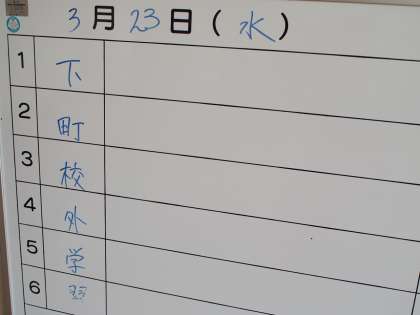 3月23日(水)
1 下
2 町
3 校
4 外
5 学
6 習